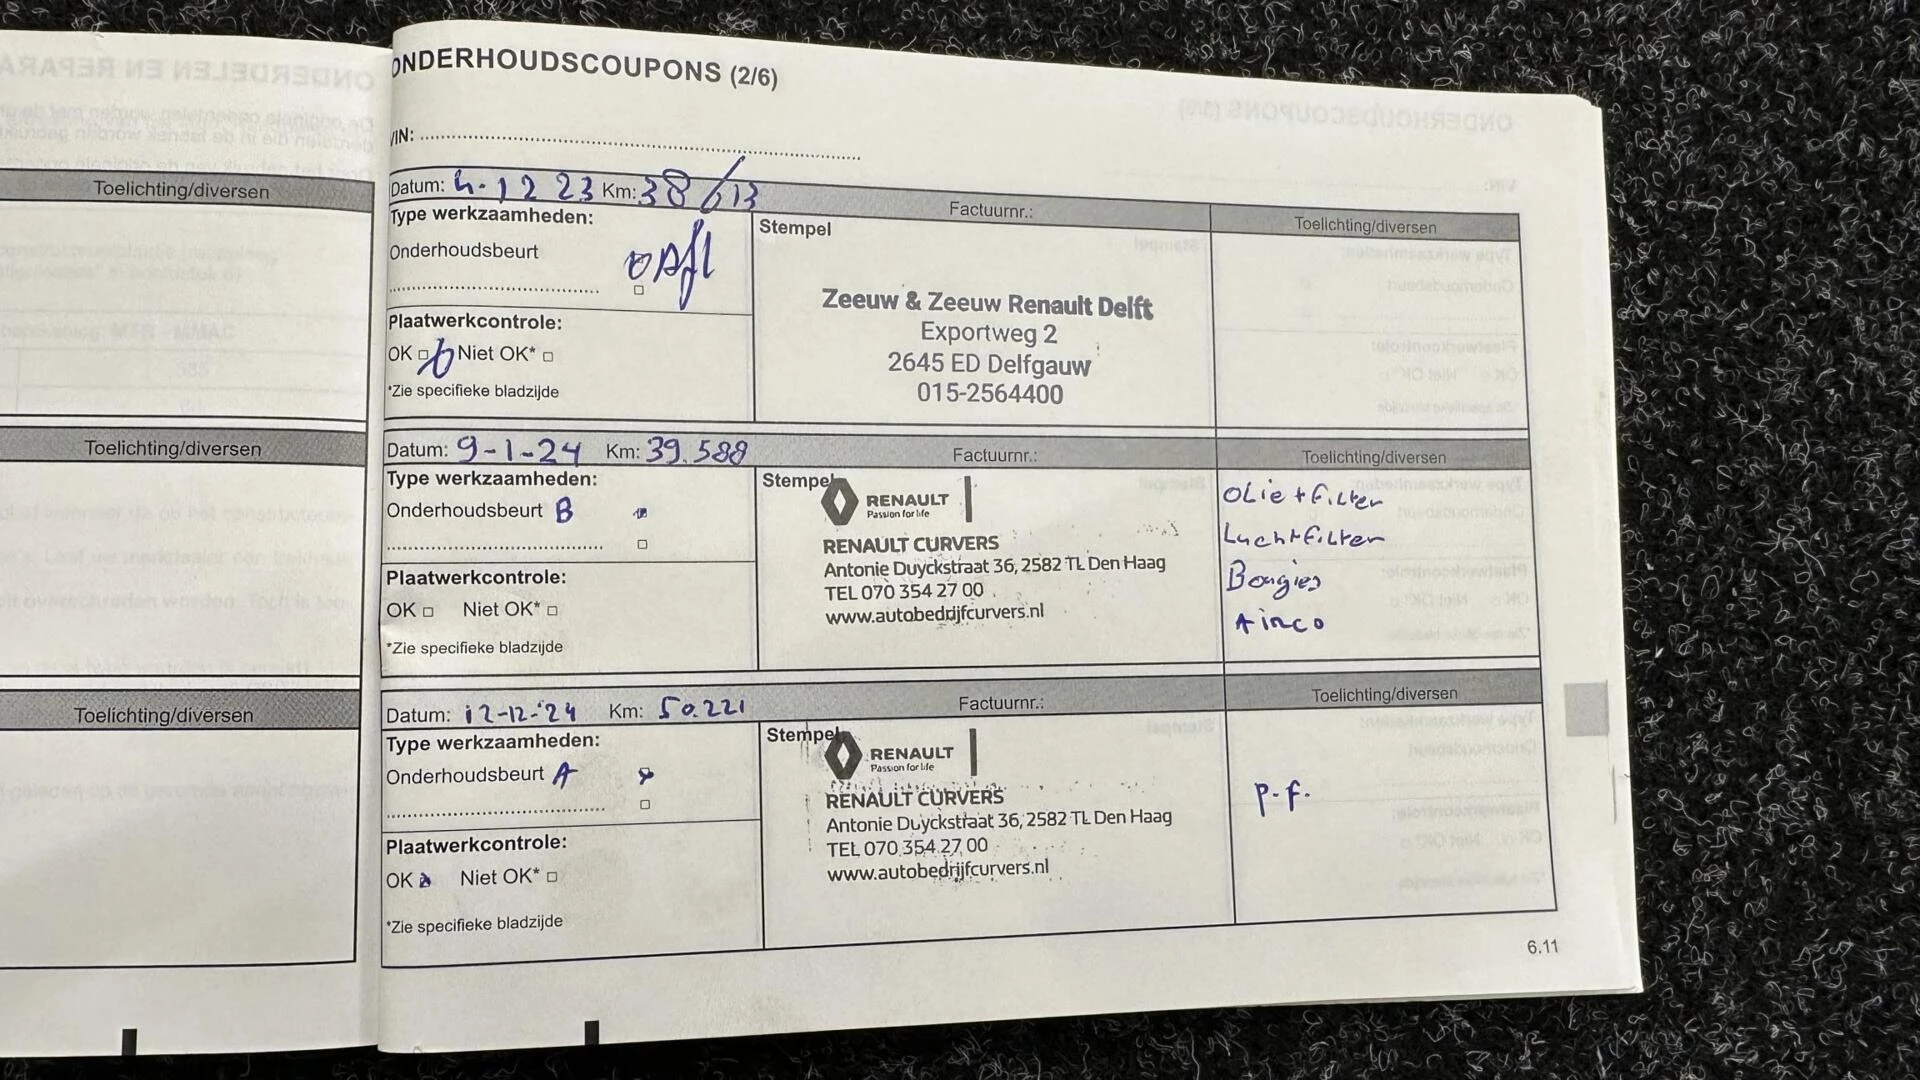 ONDERHOUDSCOUPONS (2/6)
VIN:
Toelichting/diversen
Datum: 4-12 23 Km: Factuurnr.: Toelichting/diversen
Type werkzaamheden: Stempel
Onderhoudsbeurt Afl
Zeeuw & Zeeuw Renault Delft
Exportweg 2
2645 ED Delfgauw
015-2564400
Plaatwerkcontrole:
OK Niet OK*
*Zie specifieke bladzijde
Toelichting/diversen
Datum: 9-1-24 Km: 39.588 Factuurnr.: Toelichting/diversen
Type werkzaamheden: Stempel
Onderhoudsbeurt B
RENAULT
Passion for life
RENAULT CURVERS
Antonie Duyckstraat 36, 2582 TL Den Haag
TEL 070 354 27 00
www.autobedrijfcurvers.nl
Olie + filter
Luchtfilter
Bougies
Airco
Plaatwerkcontrole:
OK Niet OK*
*Zie specifieke bladzijde
Toelichting/diversen
Datum: 12-12-'24 Km: 50.221 Factuurnr.: Toelichting/diversen
Type werkzaamheden: Stempel
Onderhoudsbeurt A
RENAULT
Passion for life
RENAULT CURVERS
Antonie Duyckstraat 36, 2582 TL Den Haag
TEL 070 354 27 00
www.autobedrijfcurvers.nl
P.F.
Plaatwerkcontrole:
OK Niet OK*
*Zie specifieke bladzijde
6.11